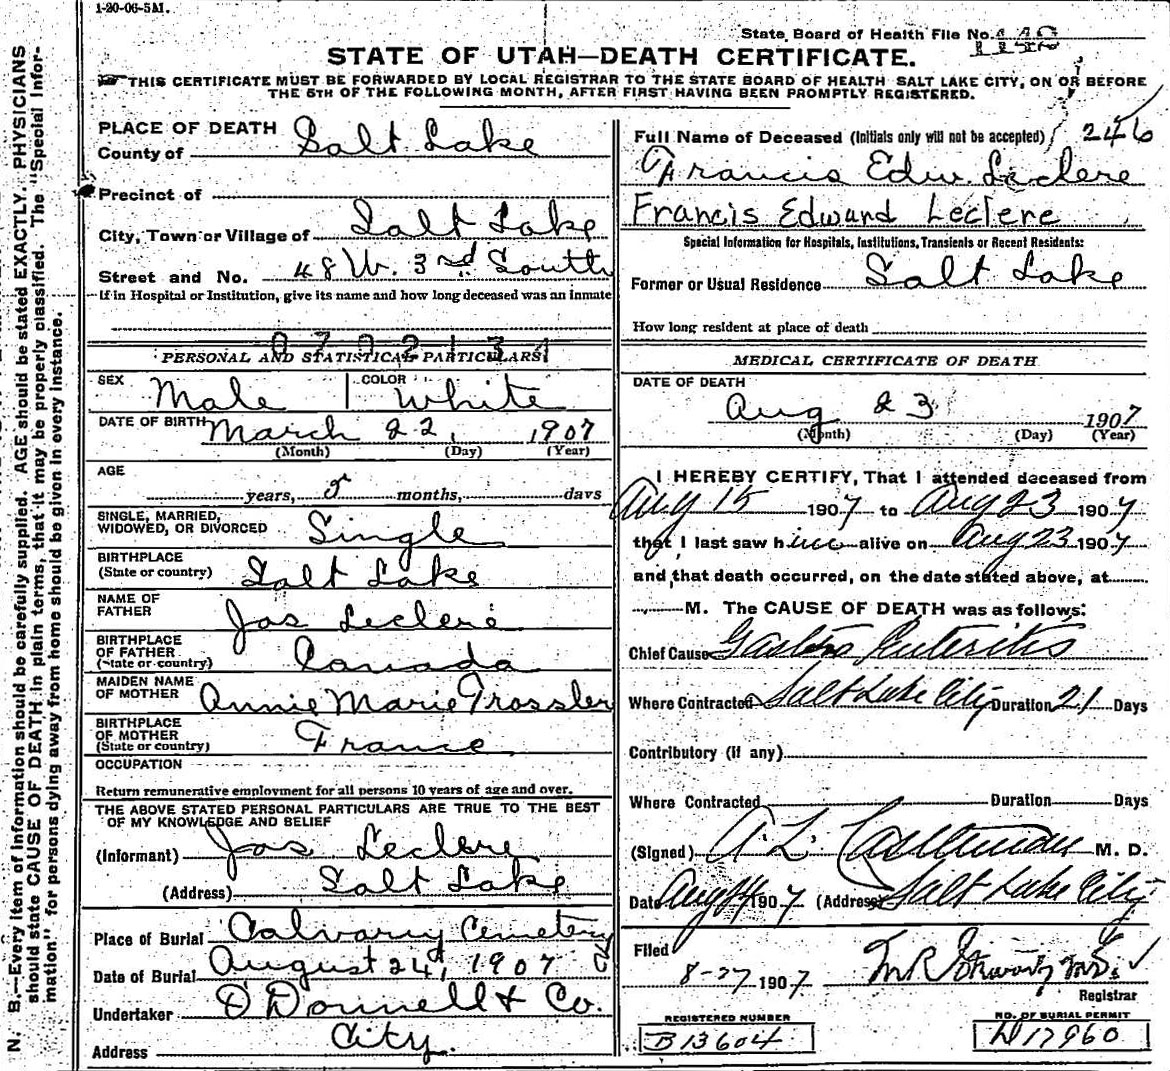 1-20-06-5M.
State Board of Health File No. 1148
STATE OF UTAH—DEATH CERTIFICATE.
THIS CERTIFICATE MUST BE FORWARDED BY LOCAL REGISTRAR TO THE STATE BOARD OF HEALTH SALT LAKE CITY, ON OR BEFORE
THE 5TH OF THE FOLLOWING MONTH, AFTER FIRST HAVING BEEN PROMPTLY REGISTERED.
N. B.—Every item of information should be carefully supplied. AGE should be stated EXACTLY. PHYSICIANS
should state CAUSE OF DEATH in plain terms, that it may be properly classified. The "Special Infor-
mation." for persons dying away from home should be given in every instance.
PLACE OF DEATH
County of Salt Lake
Precinct of
City, Town or Village of Salt Lake
Street and No. 48 W. 3rd South
If in Hospital or Institution, give its name and how long deceased was an inmate
PERSONAL AND STATISTICAL PARTICULARS
SEX Male COLOR White
DATE OF BIRTH March 22, 1907
(Month) (Day) (Year)
AGE
years, 5 months, days
SINGLE, MARRIED,
WIDOWED, OR DIVORCED Single
BIRTHPLACE
(State or country) Salt Lake
NAME OF
FATHER Jas Leclere
BIRTHPLACE
OF FATHER
(State or country) Canada
MAIDEN NAME
OF MOTHER Annie Marie Trossler
BIRTHPLACE
OF MOTHER
(State or country) France
OCCUPATION
Return remunerative employment for all persons 10 years of age and over.
THE ABOVE STATED PERSONAL PARTICULARS ARE TRUE TO THE BEST
OF MY KNOWLEDGE AND BELIEF
(Informant) Jas Leclere
(Address) Salt Lake
Place of Burial Calvary Cemetery
Date of Burial August 24, 1907
Undertaker O'Donnell & Co.
Address City.
Full Name of Deceased (Initials only will not be accepted) 246
Francis Edw. Leclere
Francis Edward Leclere
Special Information for Hospitals, Institutions, Transients or Recent Residents:
Former or Usual Residence Salt Lake
How long resident at place of death
MEDICAL CERTIFICATE OF DEATH
DATE OF DEATH
Aug 23 1907
(Month) (Day) (Year)
I HEREBY CERTIFY, That I attended deceased from
Aug 15 1907 to Aug 23 1907
that I last saw him alive on Aug 23 1907
and that death occurred, on the date stated above, at
M. The CAUSE OF DEATH was as follows:
Chief Cause Gastro Enteritis
Where Contracted Salt Lake City Duration 21 Days
Contributory (if any)
Where Contracted Duration Days
(Signed) A. L. M. D.
Date Aug 1907 (Address) Salt Lake City
Filed
8-27 1907
Registrar
REGISTERED NUMBER
B 13604
NO. OF BURIAL PERMIT
D 17960